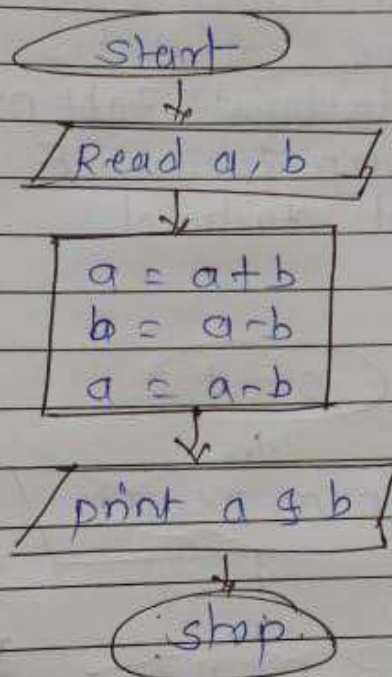 start
Read a, b
a = a+b
b = a-b
a = a-b
print a & b
stop.